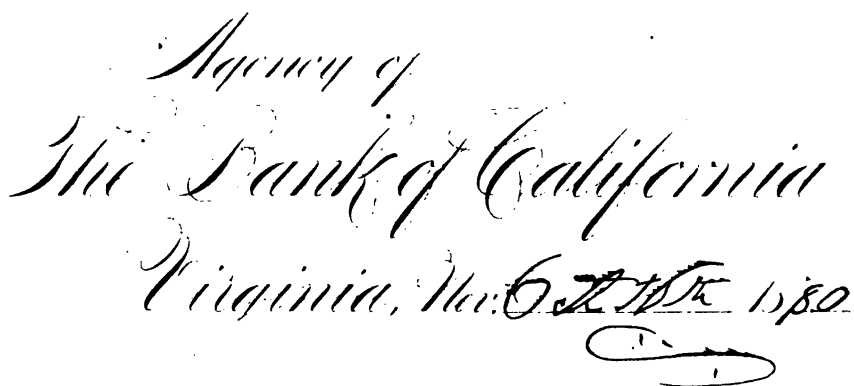 Agency of
The Bank of California
Virginia, Nev. Oct 18th 1880